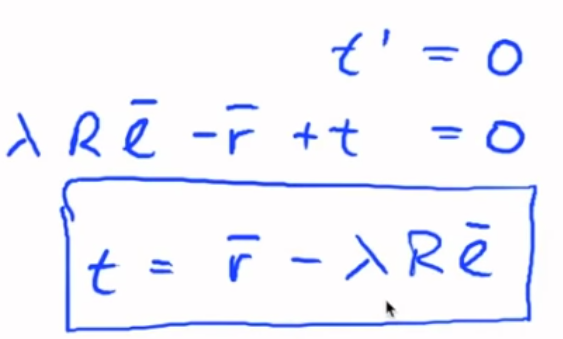 t' = 0
λ R ē - r̄ + t = 0
t = r̄ - λ R ē